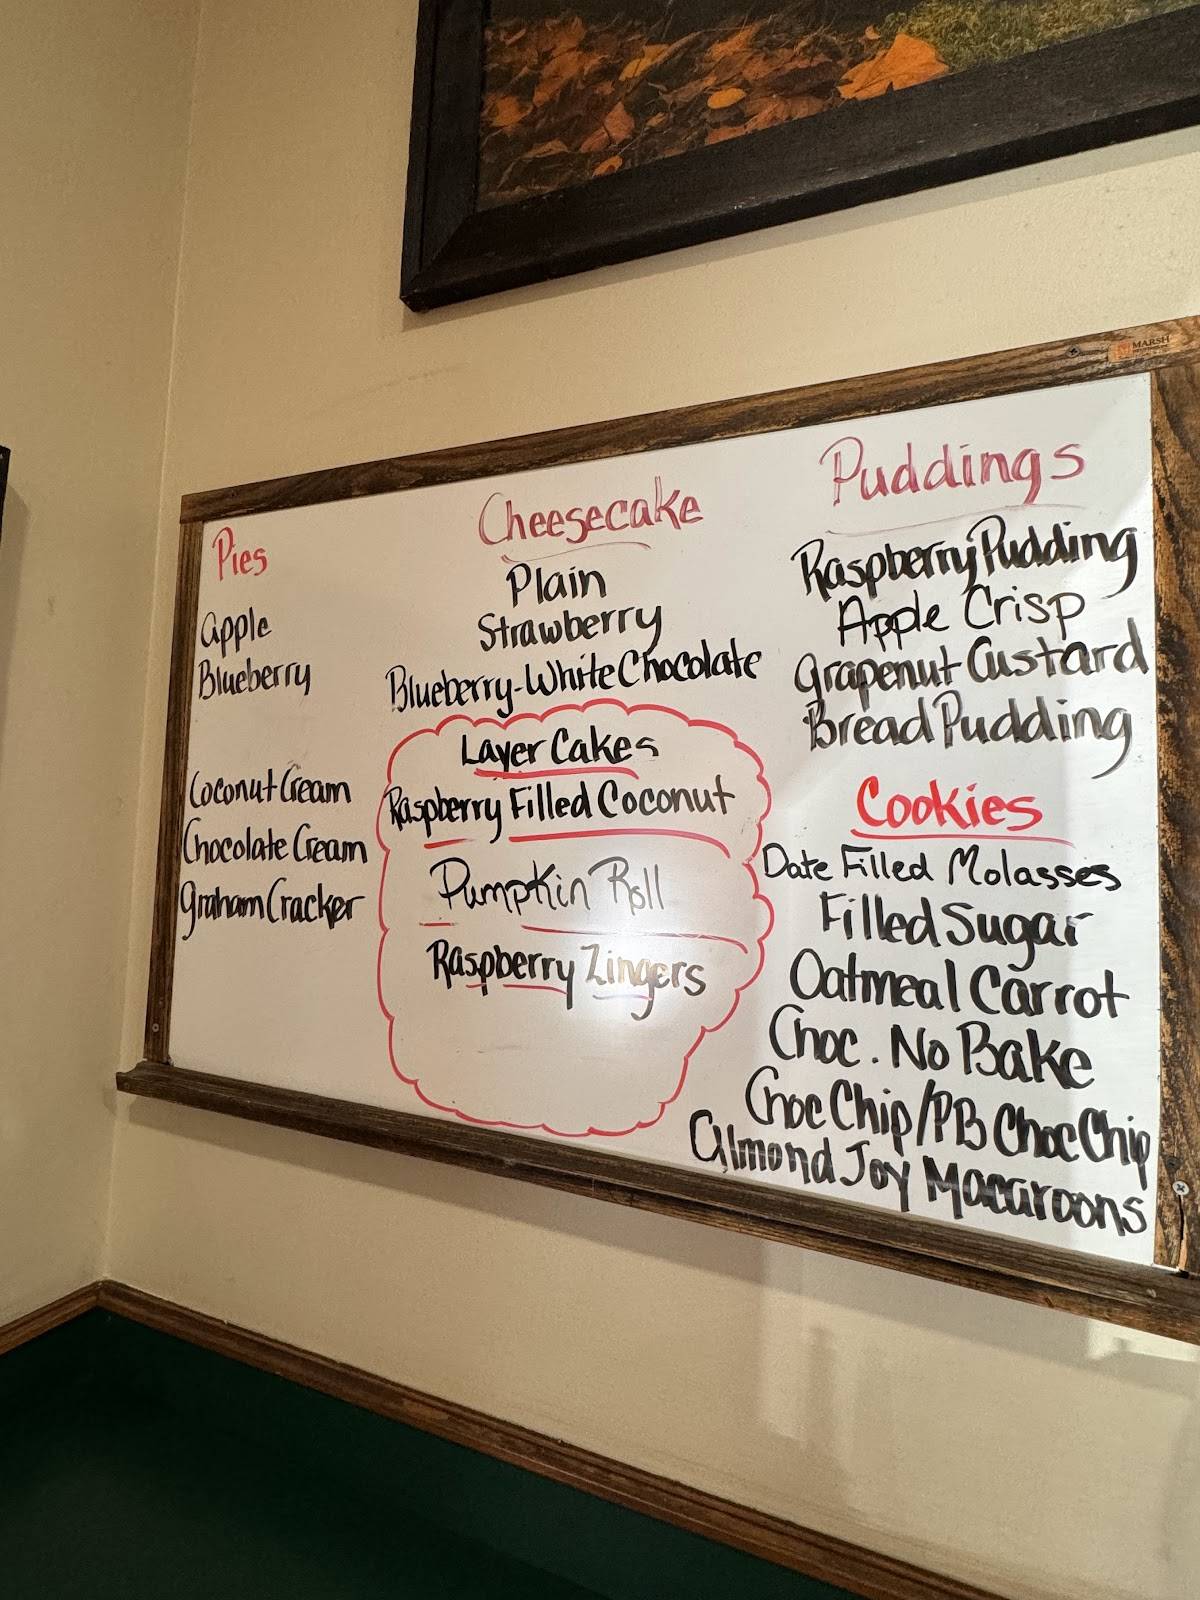 MARSH
Pies
apple
Blueberry
Coconut Cream
Chocolate Cream
Graham Cracker
Cheesecake
Plain
Strawberry
Blueberry-White Chocolate
Layer Cakes
Raspberry Filled Coconut
Pumpkin Roll
Raspberry Zingers
Puddings
Raspberry Pudding
Apple Crisp
Grapenut Custard
Bread Pudding
Cookies
Date Filled Molasses
Filled Sugar
Oatmeal Carrot
Choc. No Bake
Choc Chip/PB Choc Chip
Almond Joy Macaroons